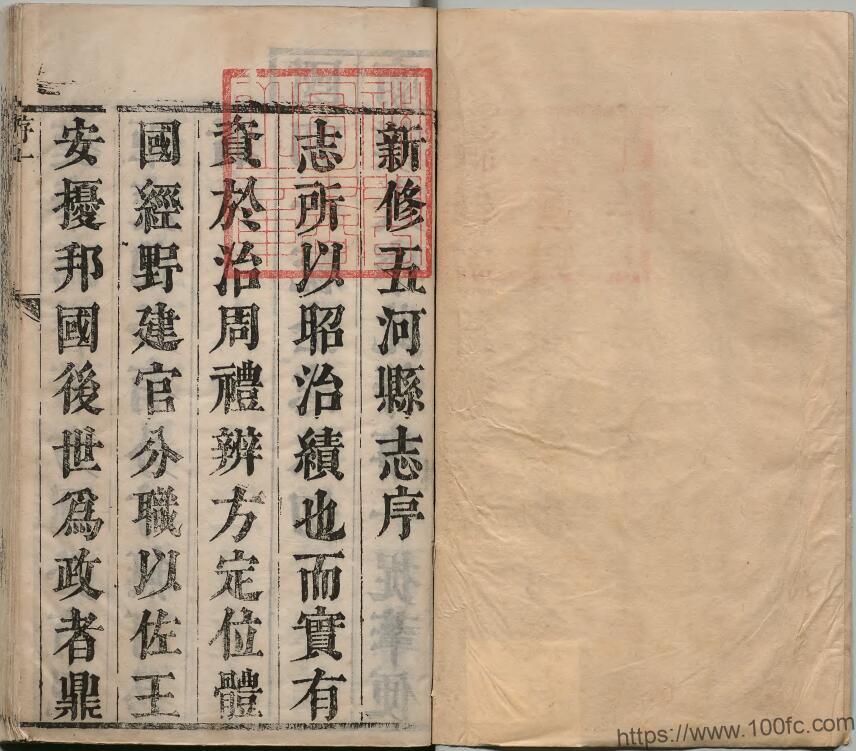 新修五河縣志序
志所以昭治績也而實有
資於治周禮辨方定位體
國經野建官分職以佐王
安擾邦國後世爲政者鼎
序一
https://www.100fc.com